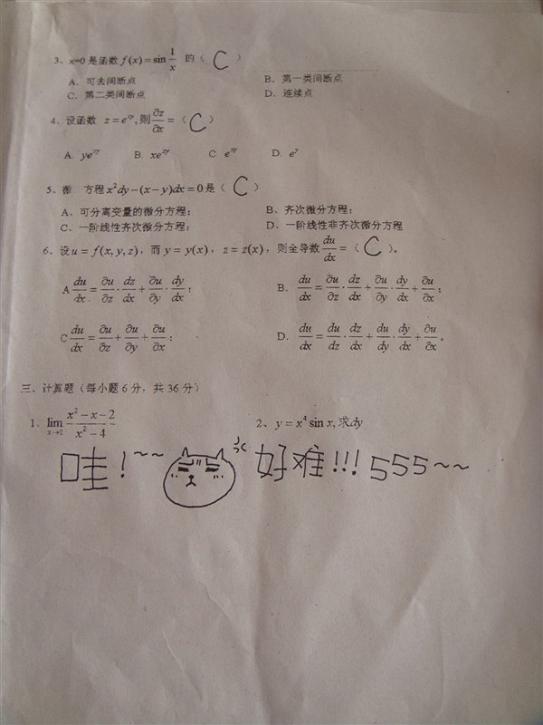 3、x=0 是函数 f(x)=sin 1/x 的（ C ）
A．可去间断点 B．第一类间断点
C．第二类间断点 D．连续点
4、设函数 z=e^{xy}，则 ∂z/∂x =（ C ）
A. ye^{xy} B. xe^{xy} C e^{xy} D. e^y
5、微 方程 x²dy−(x−y)dx=0 是（ C ）
A、可分离变量的微分方程； B、齐次微分方程；
C、一阶线性齐次微分方程； D、一阶线性非齐次微分方程
6、设 u=f(x,y,z)，而 y=y(x)，z=z(x)，则全导数 du/dx =（ C ）。
A du/dx = ∂u/∂z · dz/dx + ∂u/∂y · dy/dx； B．du/dx = ∂u/∂z · dz/dx + ∂u/∂y · dy/dx + ∂u/∂x；
C du/dx = ∂u/∂z + ∂u/∂y + ∂u/∂x； D．du/dx = du/dz · dz/dx + du/dy · dy/dx + ∂u/∂x。
三、计算题（每小题 6 分，共 36 分）
1、lim x→2 (x²−x−2)/(x²−4) 2、y=x⁴ sin x, 求dy
哇！~~ 好难!!! 555~~